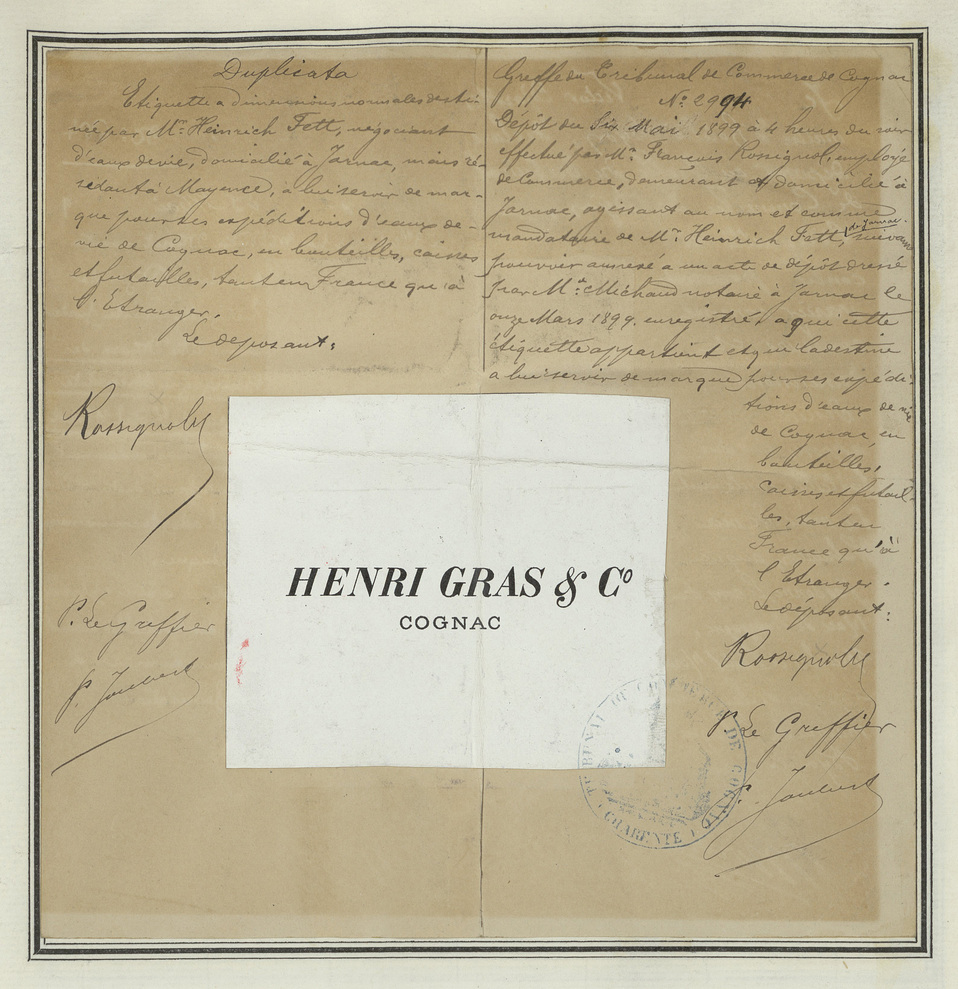 Duplicata
Etiquette à dimensions normales desti-
née par Mr Heinrich Fett, négociant
d'eaux de vie, domicilié à Jarnac, mais ré-
sidant à Mayence, à lui servir de mar-
que pour ses expéditions d'eaux-de-
vie de Cognac, en bouteilles, caisses
et futailles, tant en France qu'à
l'Etranger.
Le déposant:
Rossignol
P. Le Greffier
P. Joubert
Greffe du Tribunal de Commerce de Cognac
No: 2994
Dépôt du Six Mai 1899 à 4 heures du soir
effectué par Mr François Rossignol, employé
de Commerce, demeurant et domicilié à
Jarnac, agissant au nom et comme
mandataire de Mr Heinrich Fett, de Jarnac, suivant
pouvoir annexé a un acte de dépôt dressé
par Me Michaud notaire à Jarnac le
onze Mars 1899, enregistré, a qui cette
étiquette appartient et qui la destine
a lui servir de marque pour ses expédi-
tions d'eaux de vie
de Cognac, en
bouteilles,
caisses et futail-
les, tant en
France qu'à
l'Etranger.
Le déposant:
Rossignol
P. Le Greffier
P. Joubert
HENRI GRAS & Co
COGNAC
TRIBUNAL DE COMMERCE DE COGNAC
CHARENTE